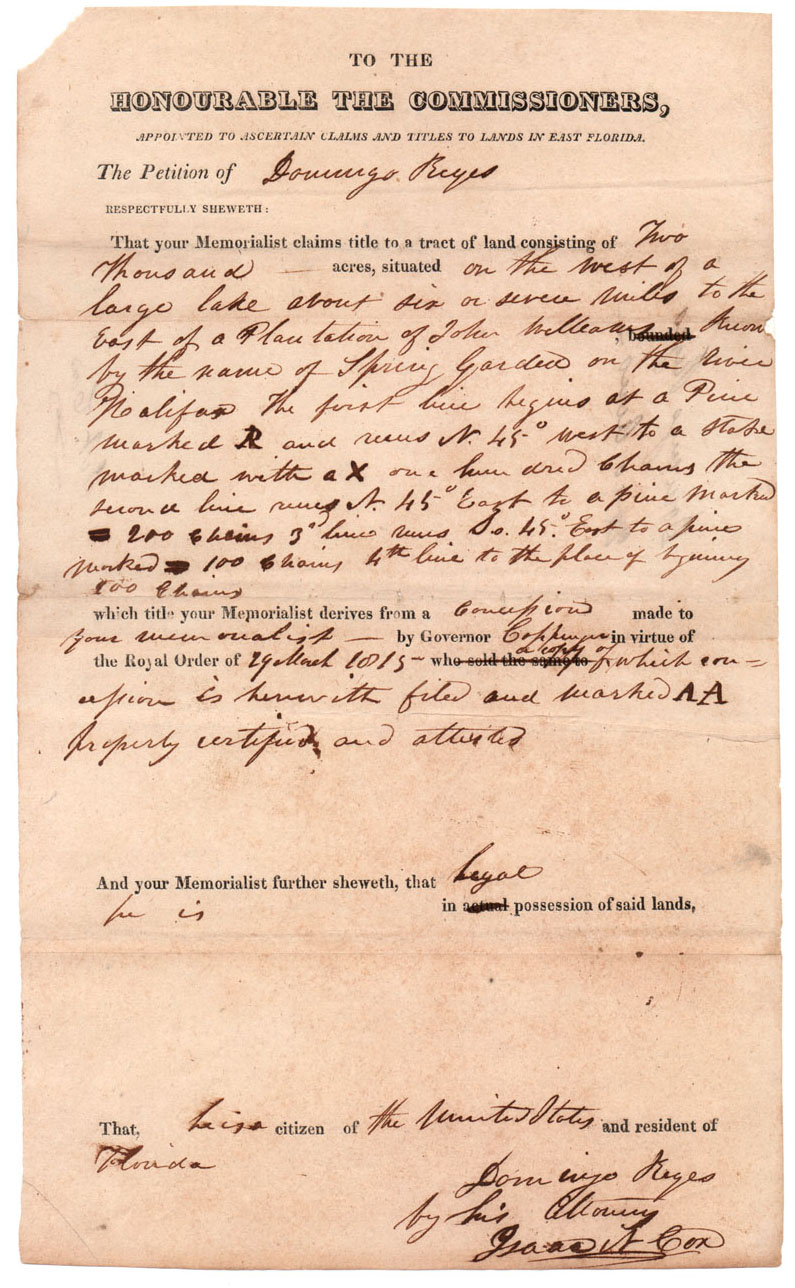 TO THE
HONOURABLE THE COMMISSIONERS,
APPOINTED TO ASCERTAIN CLAIMS AND TITLES TO LANDS IN EAST FLORIDA.
The Petition of Domingo Reyes
RESPECTFULLY SHEWETH:
That your Memorialist claims title to a tract of land consisting of Two
thousand — acres, situated on the west of a
large lake about six or seven miles to the
East of a Plantation of John Williams, bounded Know
by the name of Spring Garden on the river
Halifax The first line begins at a Pine
marked R and runs N. 45° west to a stake
marked with a X one hundred Chains the
second line runs N. 45° East to a pine marked
= 200 chains 3d line runs So. 45° East to a pine
marked = 100 Chains 4th line to the place of begining
200 Chains
which title your Memorialist derives from a Concession made to
your memorialist — by Governor Coppinger in virtue of
the Royal Order of 29 March 1815 – who sold the same to a copy of which con=
cession is herewith filed and marked AA
properly certified and attested
And your Memorialist further sheweth, that legal
he is in actual possession of said lands,
That, he is a citizen of the United States and resident of
Florida
Domingo Reyes
by his Attorney
Isaac N Cox